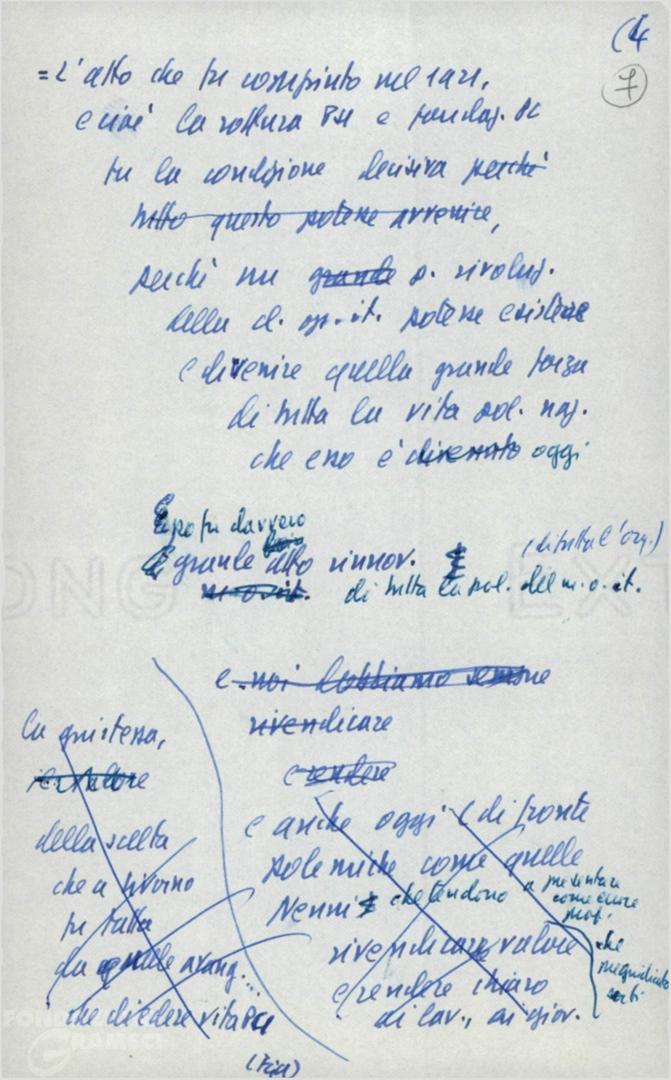 (4
7
= L'atto che fu compiuto nel 1921,
e cioè la rottura PSI e fondaz. PC
fu la condizione decisiva perché
tutto questo potesse avvenire,
perché un grande p. rivoluz.
della cl. op. it. potesse esistere
e divenire quella grande forza
di tutta la vita pol. naz.
che esso è divenuto oggi
E fu davvero
grande atto rinnov.
(di tutta l'org.)
di tutta la pol. del m. o. it.
e noi dobbiamo sempre
rivendicare
e rendere
la giustezza,
il valore
della scelta
che a Livorno
fu fatta
da quelle avang...
che diedero vita PCI
(Fine)
e anche oggi e di fronte
polemiche come quelle
Nenni che tendono a presentare
come errore
prof.
rivendicare valore
che
pregiudicato
sorti
e rendere chiaro
di lav., ai giov.
FONDAZIONE
GRAMSCI